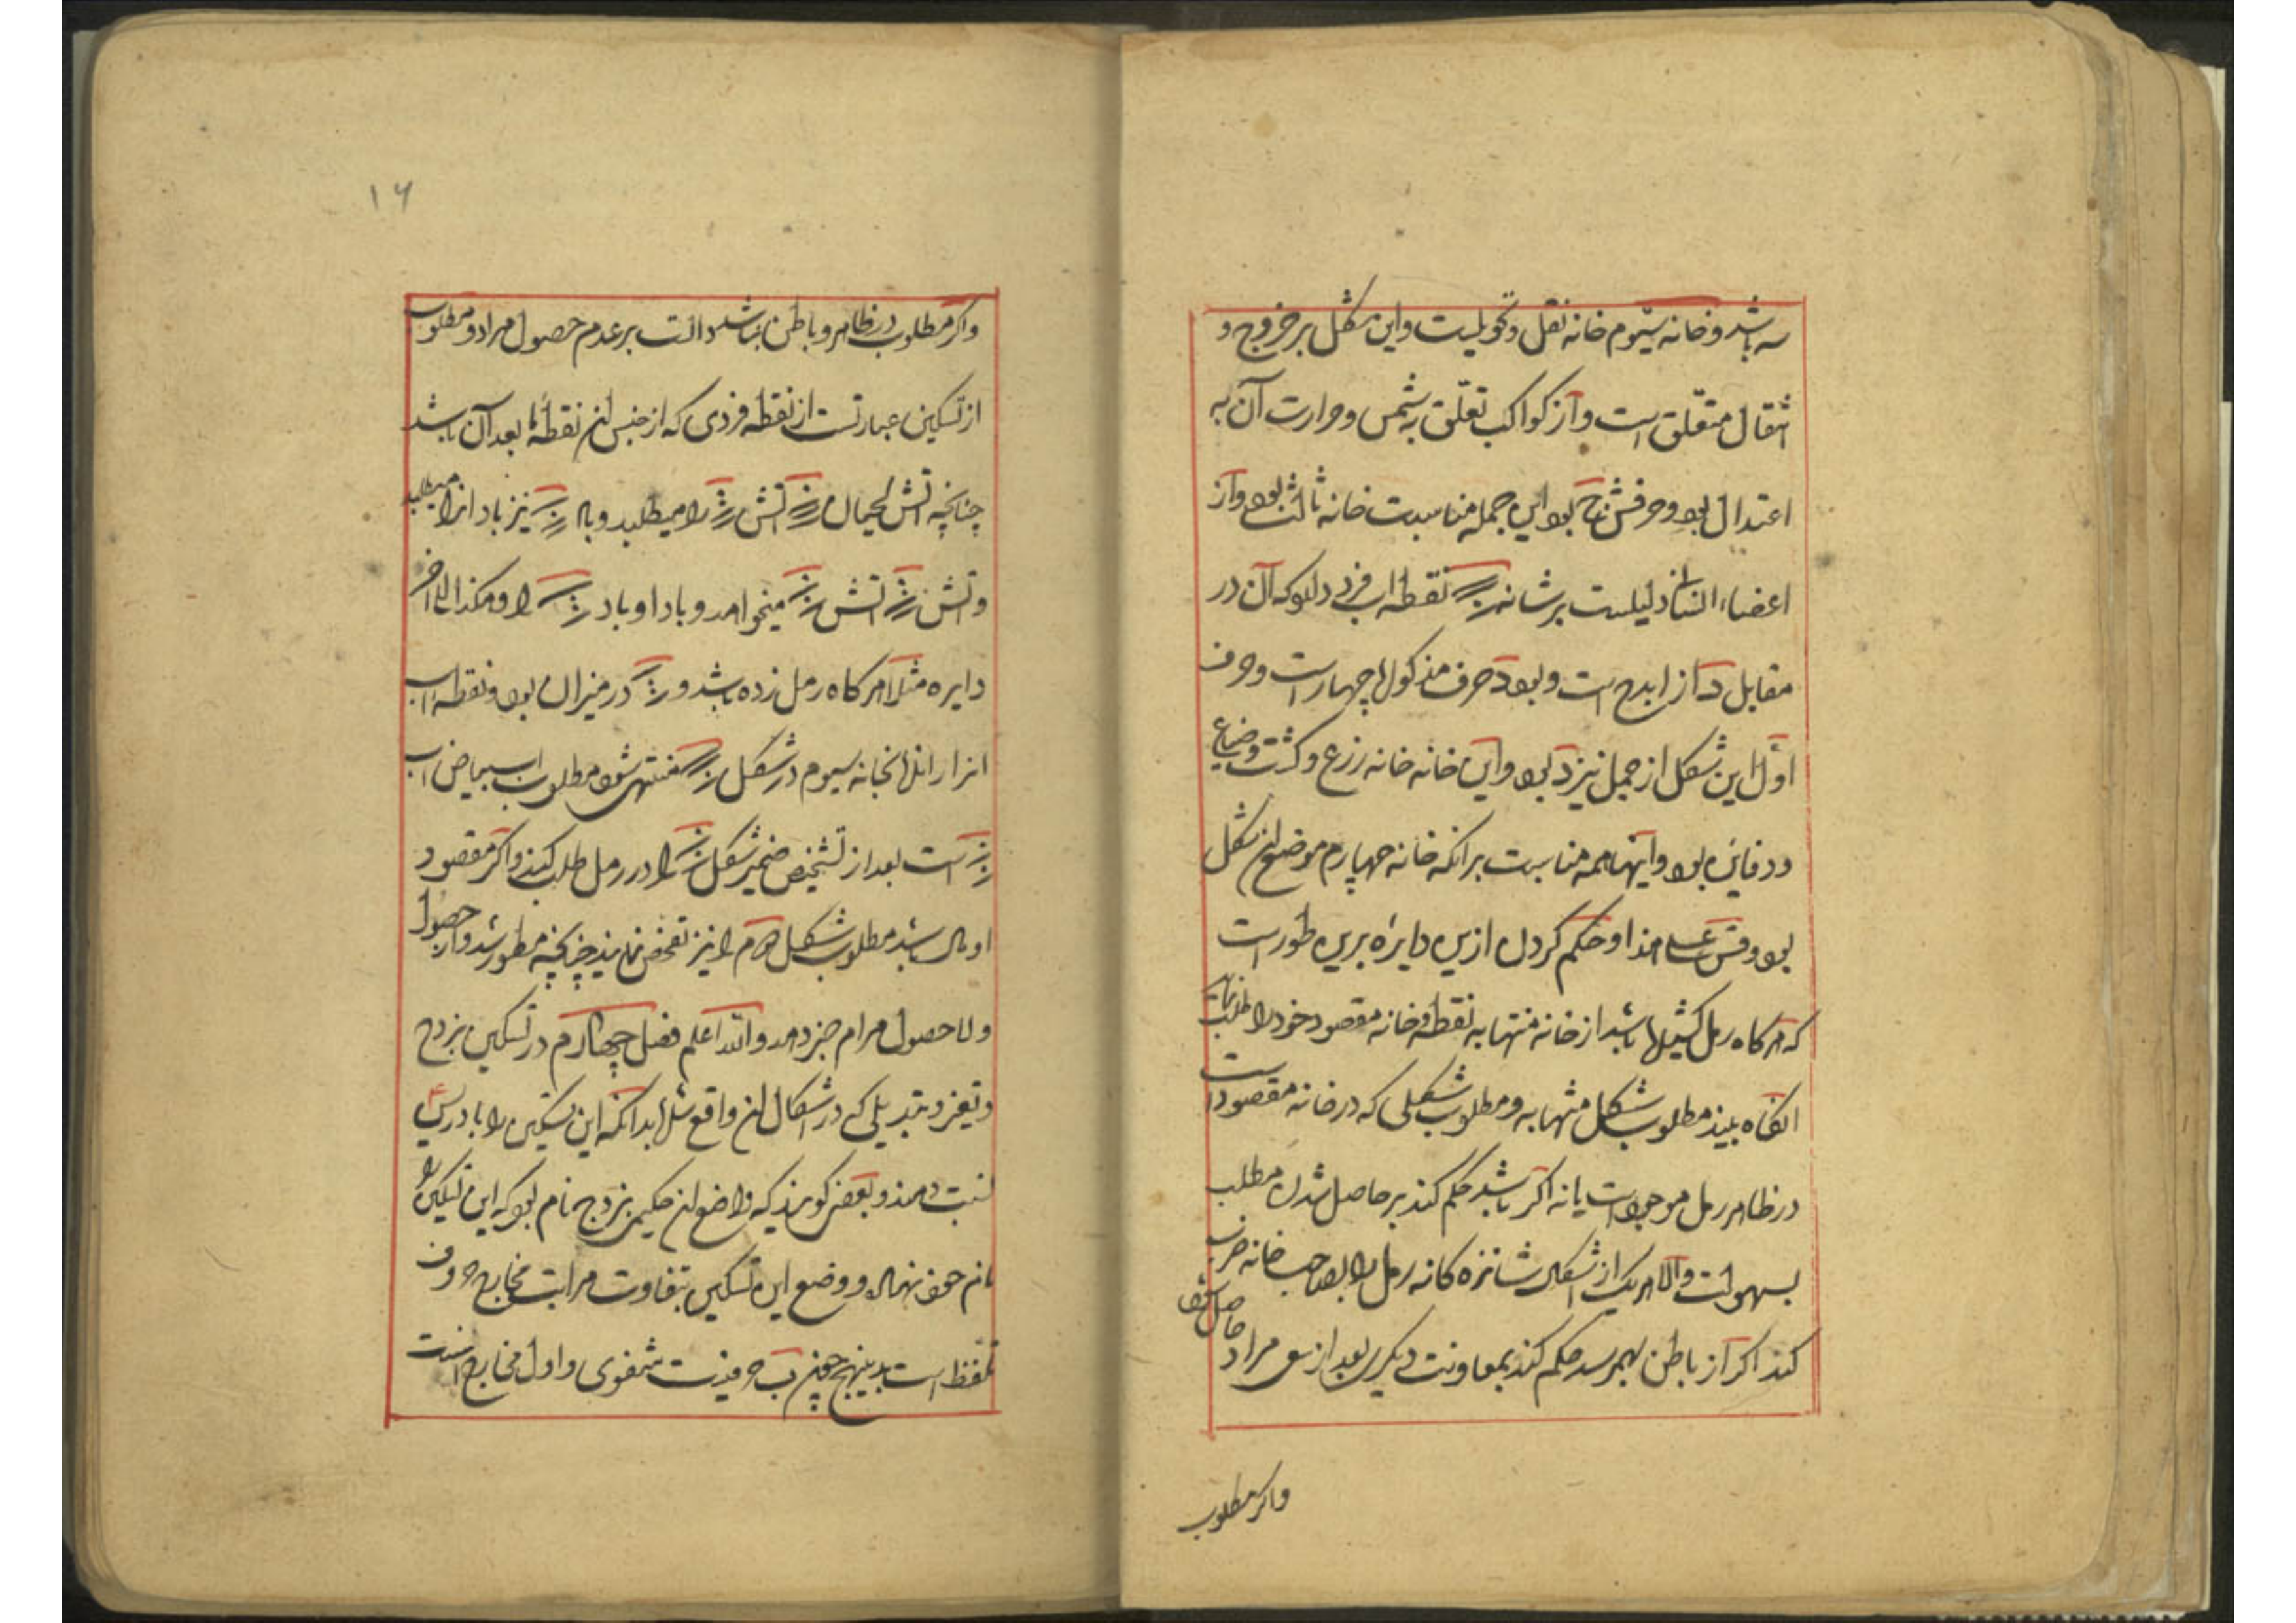 سه باشد و خانه سیوم خانه نقل و تحویلست و این شکل بر خروج و
انتقال متعلق است و از کواکب تعلق به شمس و حرارت آن به
اعتدال بود و حرفش ج بود این جمله مناسبت خانه ثالث بود و از
اعضاء انسان دلیلست بر شانه نقطه اب فرد دارد که آن در
مقابل د از ابدح است و بود د حرف مذکور را چهار است و حرف
اول این شکل از جمل نیز د بود و این خانه خانه زرع و کشت و ضیاع
و دفاین بود و اینها همه مناسبت برانکه خانه چهارم موضع این شکل
بود و قس علی هذا و حکم کردن ازین دایره برین طور است
که هرکاه رمل کشیده باشد از خانه منتهابه نقطه و خانه مقصود خود را طلب نماید
انکاه بیند مطلوب شکل منتهابه و مطلوب شکلی که در خانه مقصود است
در ظاهر رمل موجود است یا نه اکر باشد حکم کند بر حاصل شدن مطلب
بسهولت والا هر یک از اشکال شانزده کانه رمل را بصاحب خانه ضرب
کند اکر از باطن بهم رسد حکم کند بمعاونت دیکری بعد از سعی مراد
حاصل شود
واکر مطلوب
۱۶
واکر مطلوب در ظاهر و باطن نباشد دالست بر عدم حصول مراد و مطلوب
از تسکین عبارتست از نقطه فردی که از جنس ان نقطه تا بعد آن باشد
چنانچه اتش لحیان اتش را میطلبد و باد نیز باد انرا میطلبد
و اتش اتش میخواهد و باد او باد را و هکذا الی اخر
دایره مثلا هرکاه رمل زده باشد و در میزان بود و نقطه اب
انرا راندند بخانه سیوم در شکل منتهی شود مطلوب اب بیاض اب
است بعد از تشخیص ضمیر شکل را در رمل طلب کنند واکر مقصود
او مال باشد مطلوب شکل دوم را نیز تفحص نمایند چنانچه مسطور شد و از حصول
و لا حصول مرام خبر دهد والله اعلم فصل چهارم در تسکین بزدح
و تغیر و تبدیلی که در اشکال ان واقع شده بدانکه این تسکین را بادریس
نسبت دهند و بعضی کویند که واضع ان حکیمی بزدح نام بود که این تسکین را
بنام خود نهاد و وضع این تسکین بتفاوت مراتب مخارج حروف
تلفظ است بدینهج چون ب حرفیست شفوی و اول مخارج است